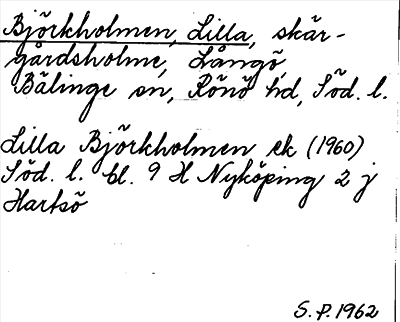 Björkholmen, Lilla, skär-
gårdsholme, Långö,
Bälinge sn, Rönö hd, Söd. l.
Lilla Björkholmen ek (1960)
Söd. l. bl. 9 H Nyköping 2 j
Hartsö
S.P. 1962